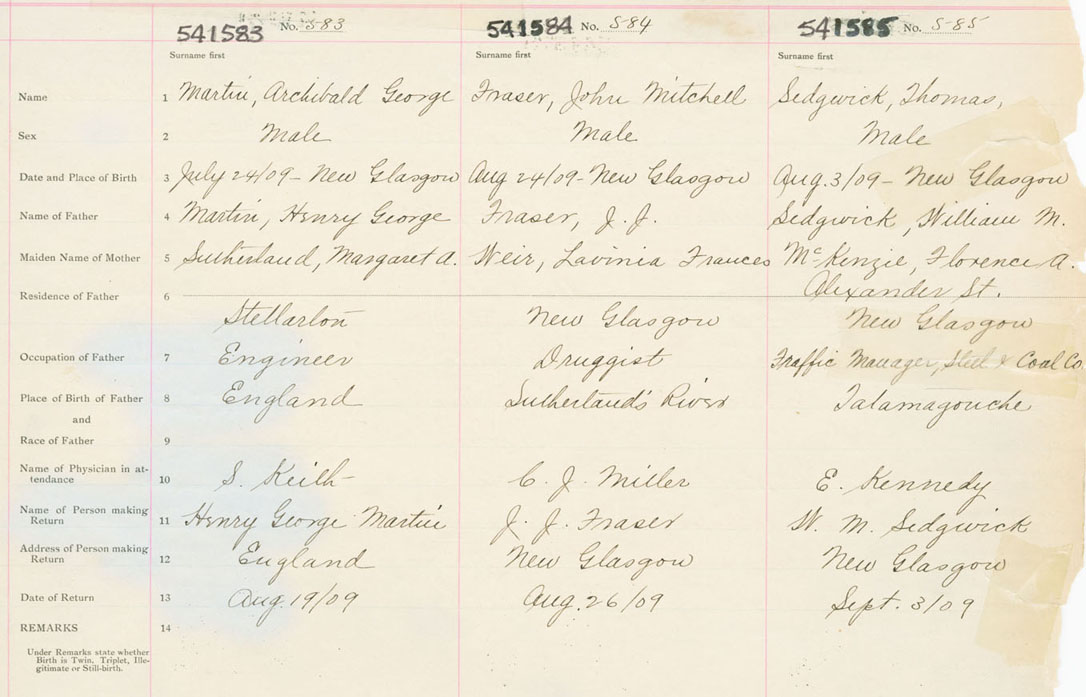 541583 No. 583 541584 No. 584 541585 No. 585
Surname first Surname first Surname first
Name 1 Martin, Archibald George Fraser, John Mitchell Sedgwick, Thomas,
Sex 2 Male Male Male
Date and Place of Birth 3 July 24/09 - New Glasgow Aug 24/09 - New Glasgow Aug. 3/09 - New Glasgow
Name of Father 4 Martin, Henry George Fraser, J. J. Sedgwick, William M.
Maiden Name of Mother 5 Sutherland, Margaret A. Weir, Lavinia Frances McKenzie, Florence A.
Residence of Father 6 Alexander St.
Stellarton New Glasgow New Glasgow
Occupation of Father 7 Engineer Druggist Traffic Manager, Steel & Coal Co.
Place of Birth of Father 8 England Sutherland's River Tatamagouche
and
Race of Father 9
Name of Physician in at-
tendance 10 S. Keith C. J. Miller E. Kennedy
Name of Person making
Return 11 Henry George Martin J. J. Fraser W. M. Sedgwick
Address of Person making
Return 12 England New Glasgow New Glasgow
Date of Return 13 Aug. 19/09 Aug. 26/09 Sept. 3/09
REMARKS 14
Under Remarks state whether
Birth is Twin, Triplet, Ille-
gitimate or Still-birth.